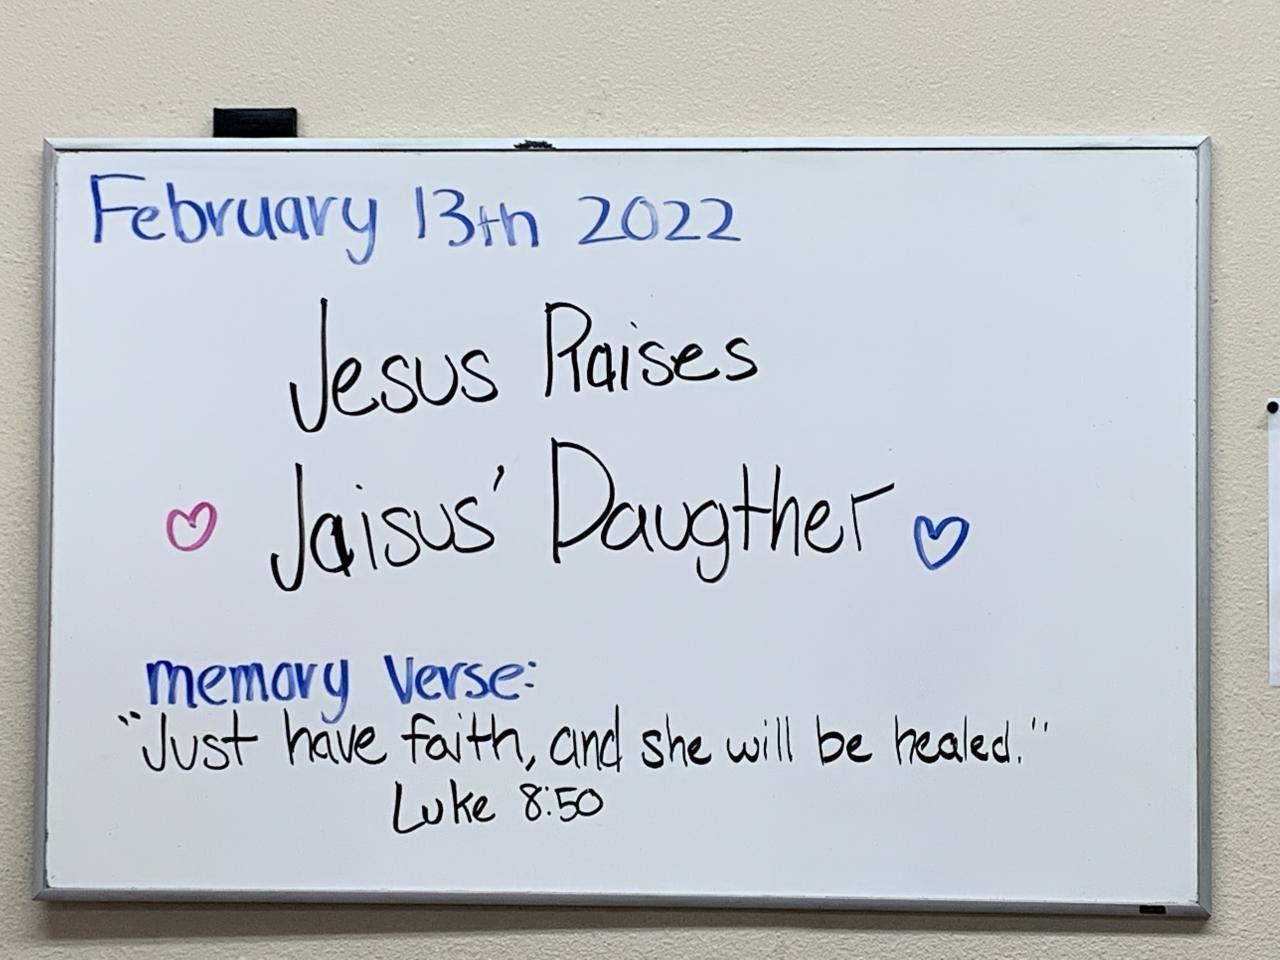 February 13th 2022
Jesus Raises
Jaisus' Daugther
memory Verse:
"Just have faith, and she will be healed."
Luke 8:50